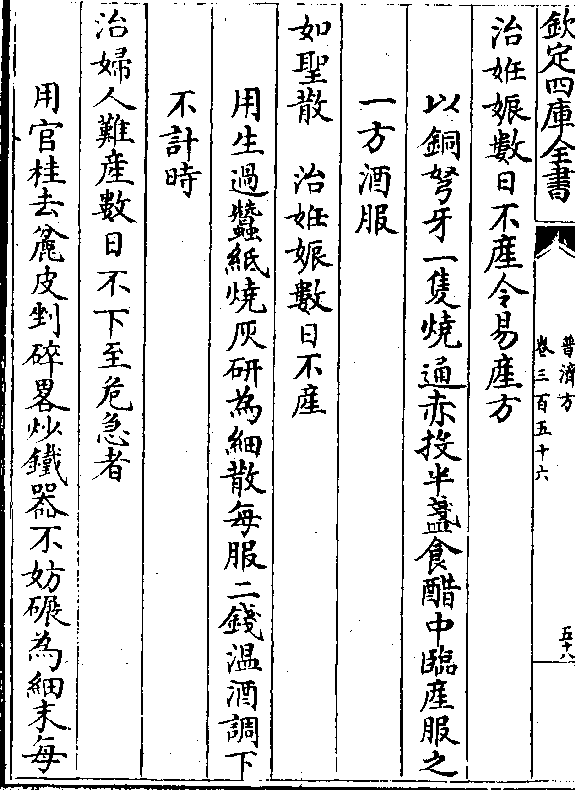 欽定四庫全書
普濟方
卷三百五十六
五十八
治姙娠數日不產令易產方
以銅弩牙一隻燒通赤投半盞食醋中臨產服之
一方酒服
如聖散　治姙娠數日不產
用生過蠶紙燒灰研為細散每服二錢温酒調下
不計時
治婦人難產數日不下至危急者
用官桂去麄皮剉碎畧炒鐵器不妨碾為細末每